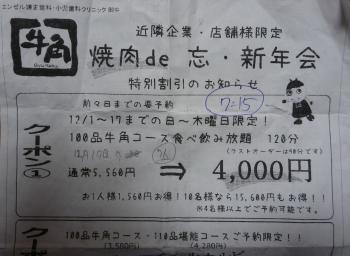 エンゼル矯正歯科・小児歯科クリニック 御中
牛角
Gyu-Kaku
近隣企業・店舗様限定
焼肉de 忘・新年会
特別割引のお知らせ
前々日までの要予約
7:15
クーポン①
12/1~17までの日~木曜日限定!
100品牛角コース食べ飲み放題 120分
(ラストオーダーは90分です)
12月17日
通常5,560円 ⇒ 4,000円
お1人様1,560円お得!10名様なら15,600円もお得!!
※4名様以上でご予約可能です。
クーポン
100品牛角コース・110品堪能コースご予約限定!!
(3,580円) (4,280円)